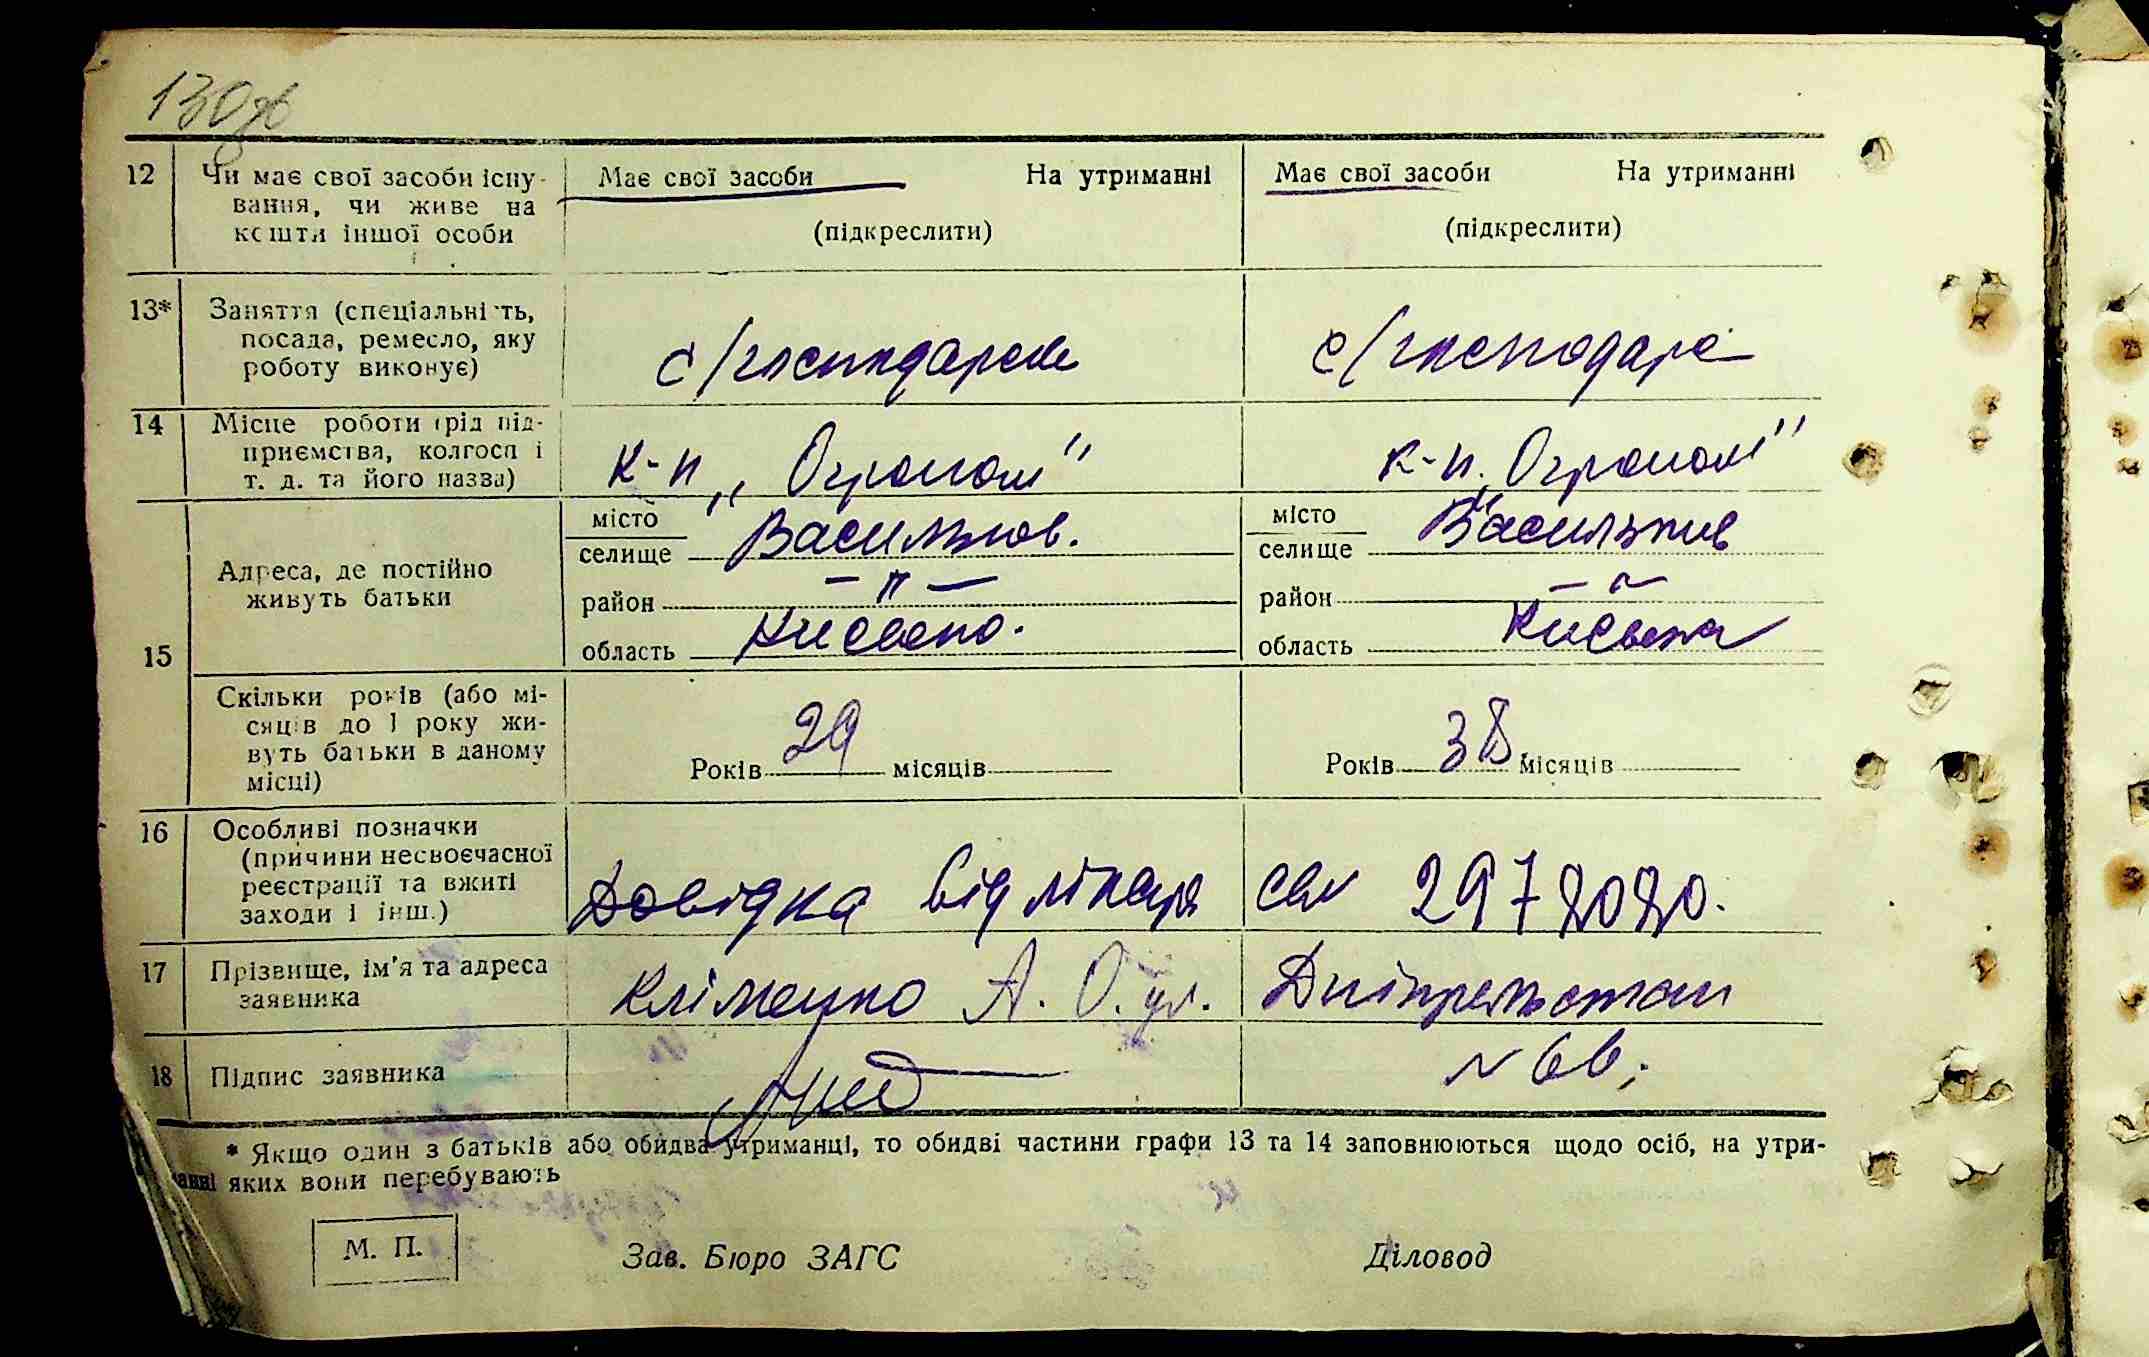 130зв
12 Чи має свої засоби існу- Має свої засоби На утриманні Має свої засоби На утриманні
вання, чи живе на
кошти іншої особи (підкреслити) (підкреслити)
13* Заняття (спеціальність,
посада, ремесло, яку с/господарств с/господарс
роботу виконує)
14 Місце роботи (рід під-
приємства, колгосп і к-п „Огроном" к-п „Огроном"
т. д. та його назва)
15 Адреса, де постійно
живуть батьки
місто Васильков. місто Васильків
селище селище
район — " — район — " —
область Київсько. область Київська
Скільки років (або мі-
сяців до 1 року жи-
вуть батьки в даному Років 29 місяців Років 38 місяців
місці)
16 Особливі позначки
(причини несвоєчасної
реєстрації та вжиті Довідка від лікаря
заходи і інш.)
17 Прізвище, ім'я та адреса Кліменко А. О. ул.
заявника
18 Підпис заявника № 66;
* Якщо один з батьків або обидва утриманці, то обидві частини графи 13 та 14 заповнюються щодо осіб, на утри-
манні яких вони перебувають
М. П. Зав. Бюро ЗАГС Діловод